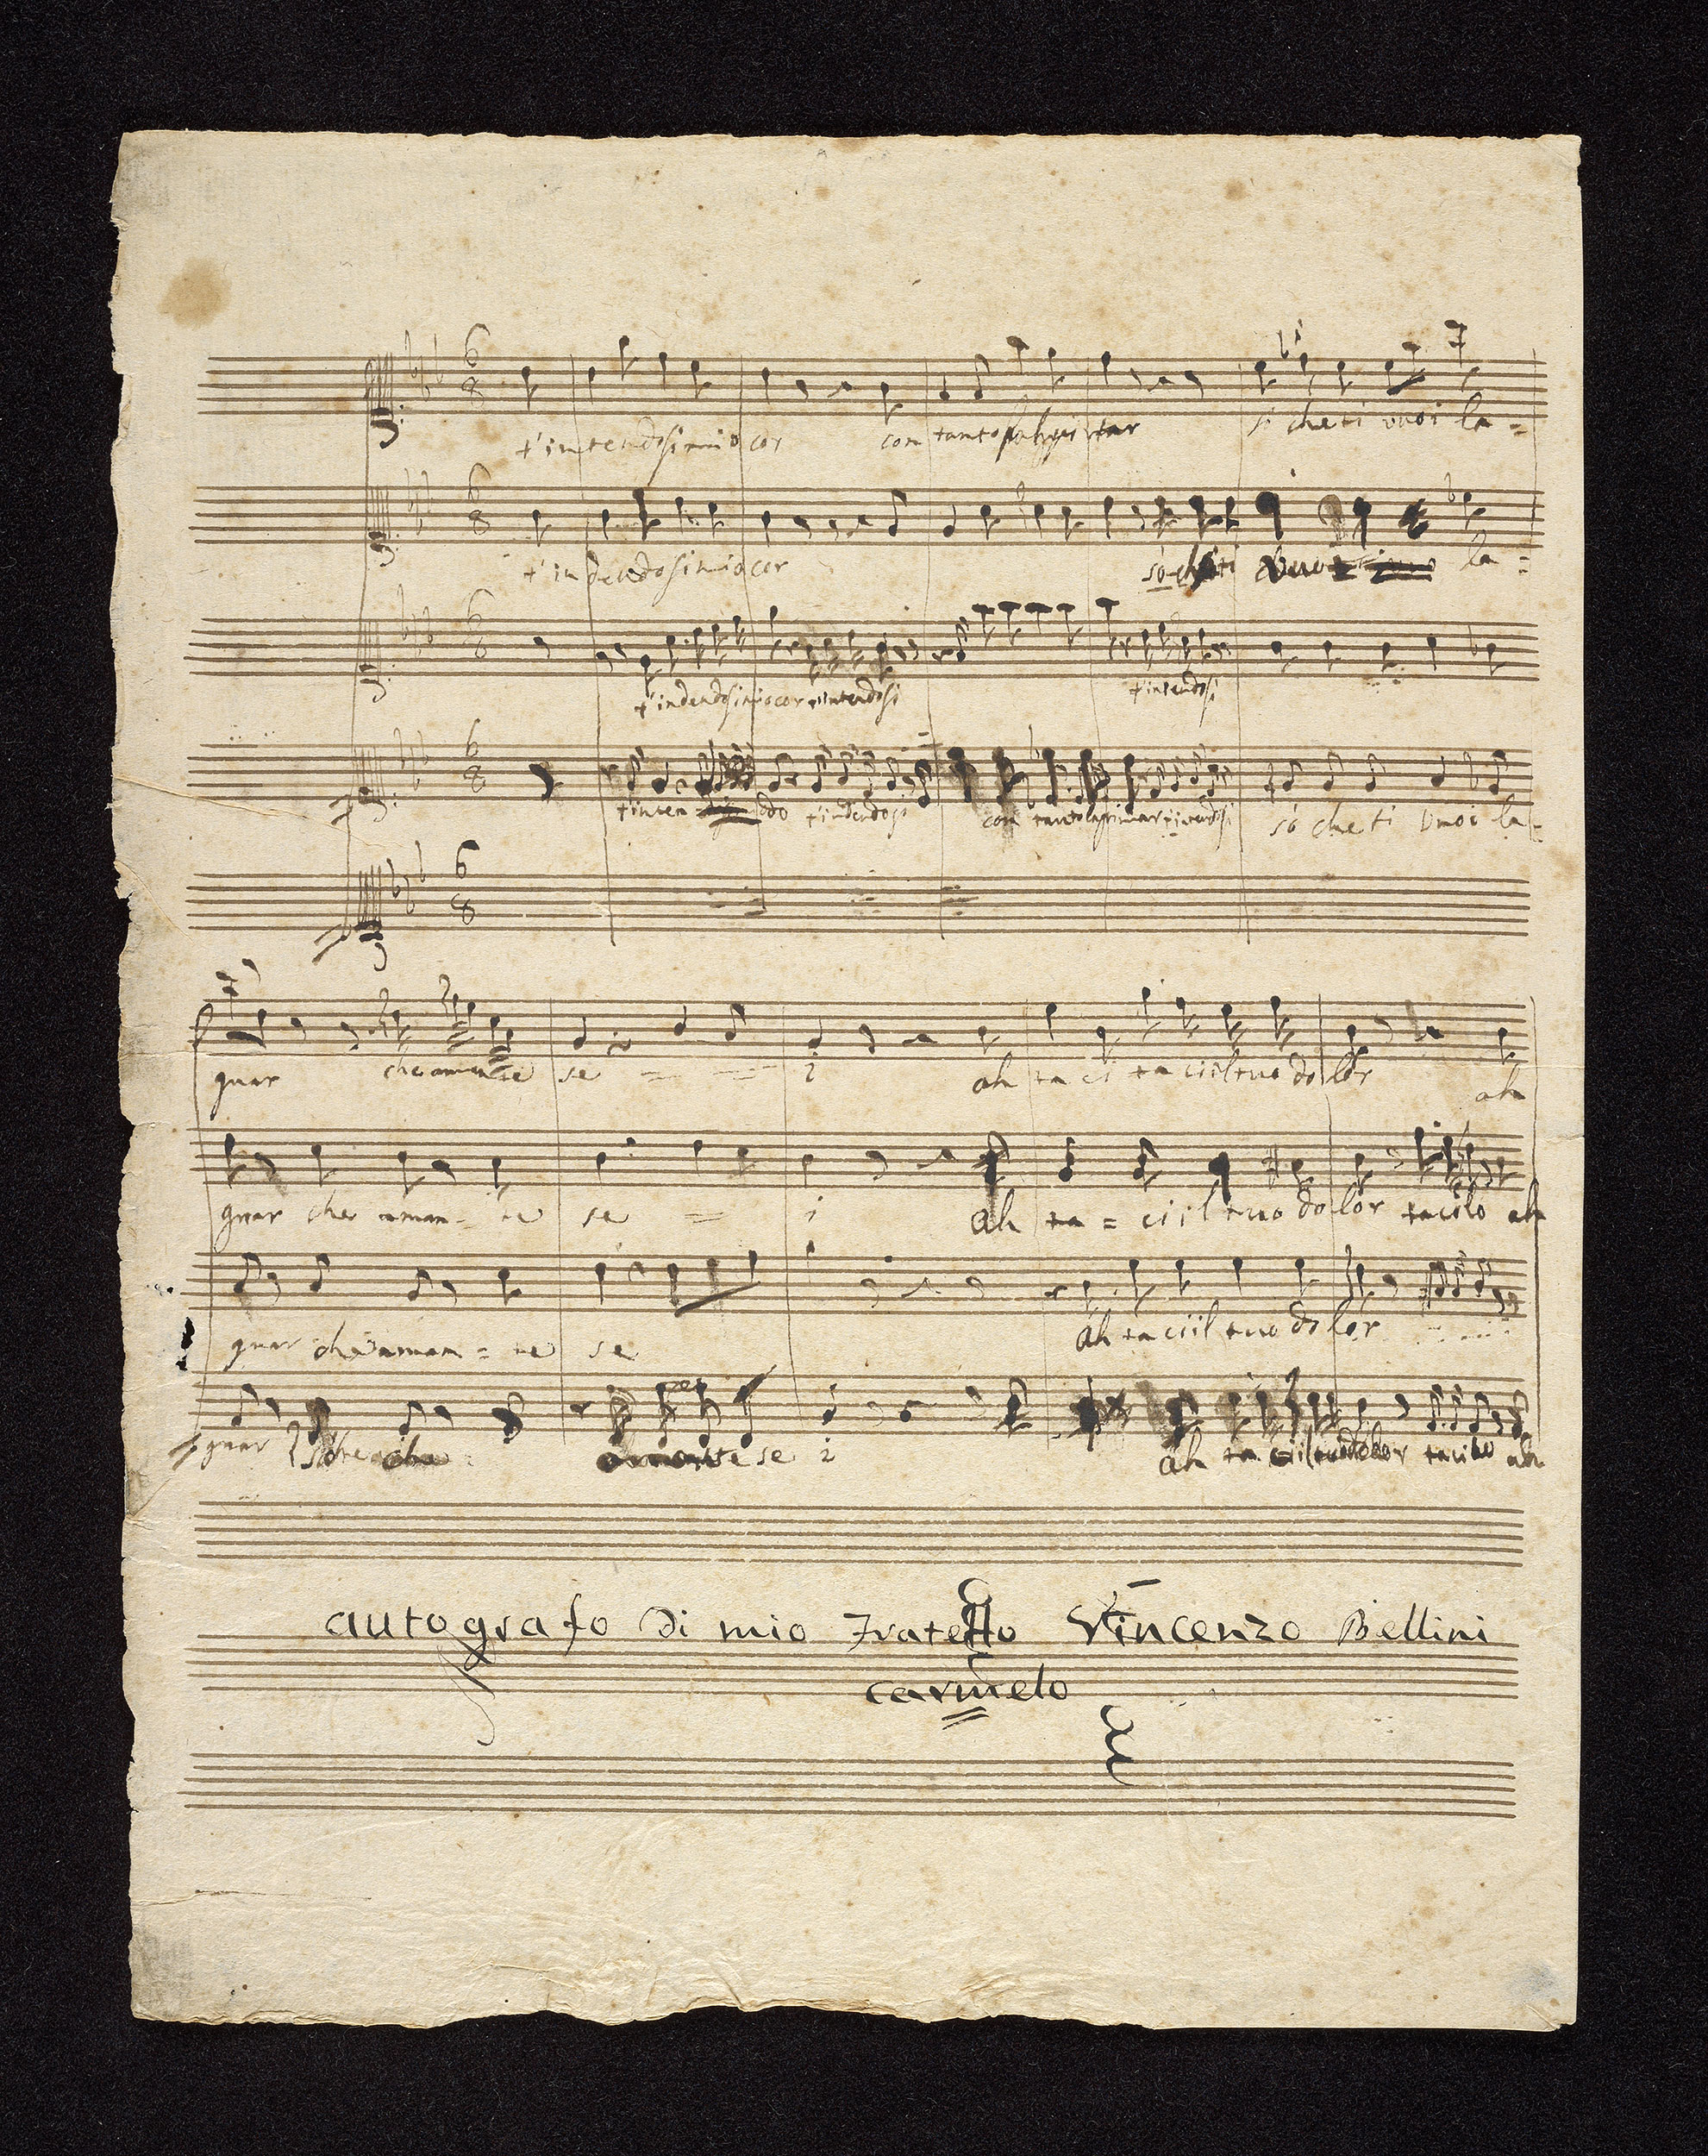 t'intendo si mio cor con tanto palpitar sò che ti vuoi la=
t'indendo si mio cor sò che ti la=
t'indendo si mio cor t'intendo si t'intendo si
t'inten do t'indendo si con tanto t'intendo si sò che ti vuoi la=
gnar che amante se = = i ah ta ci ta ci il tuo do lor ah
gnar che aman= te se = i ah ta = ci il tuo do lor tacilo ah
gnar che aman = te se ah ta ci il tuo do lor
gnar che amante se i ah ta ci il tuo dolor tacilo ah
autografo di mio Fratello Vincenzo Bellini
carmelo